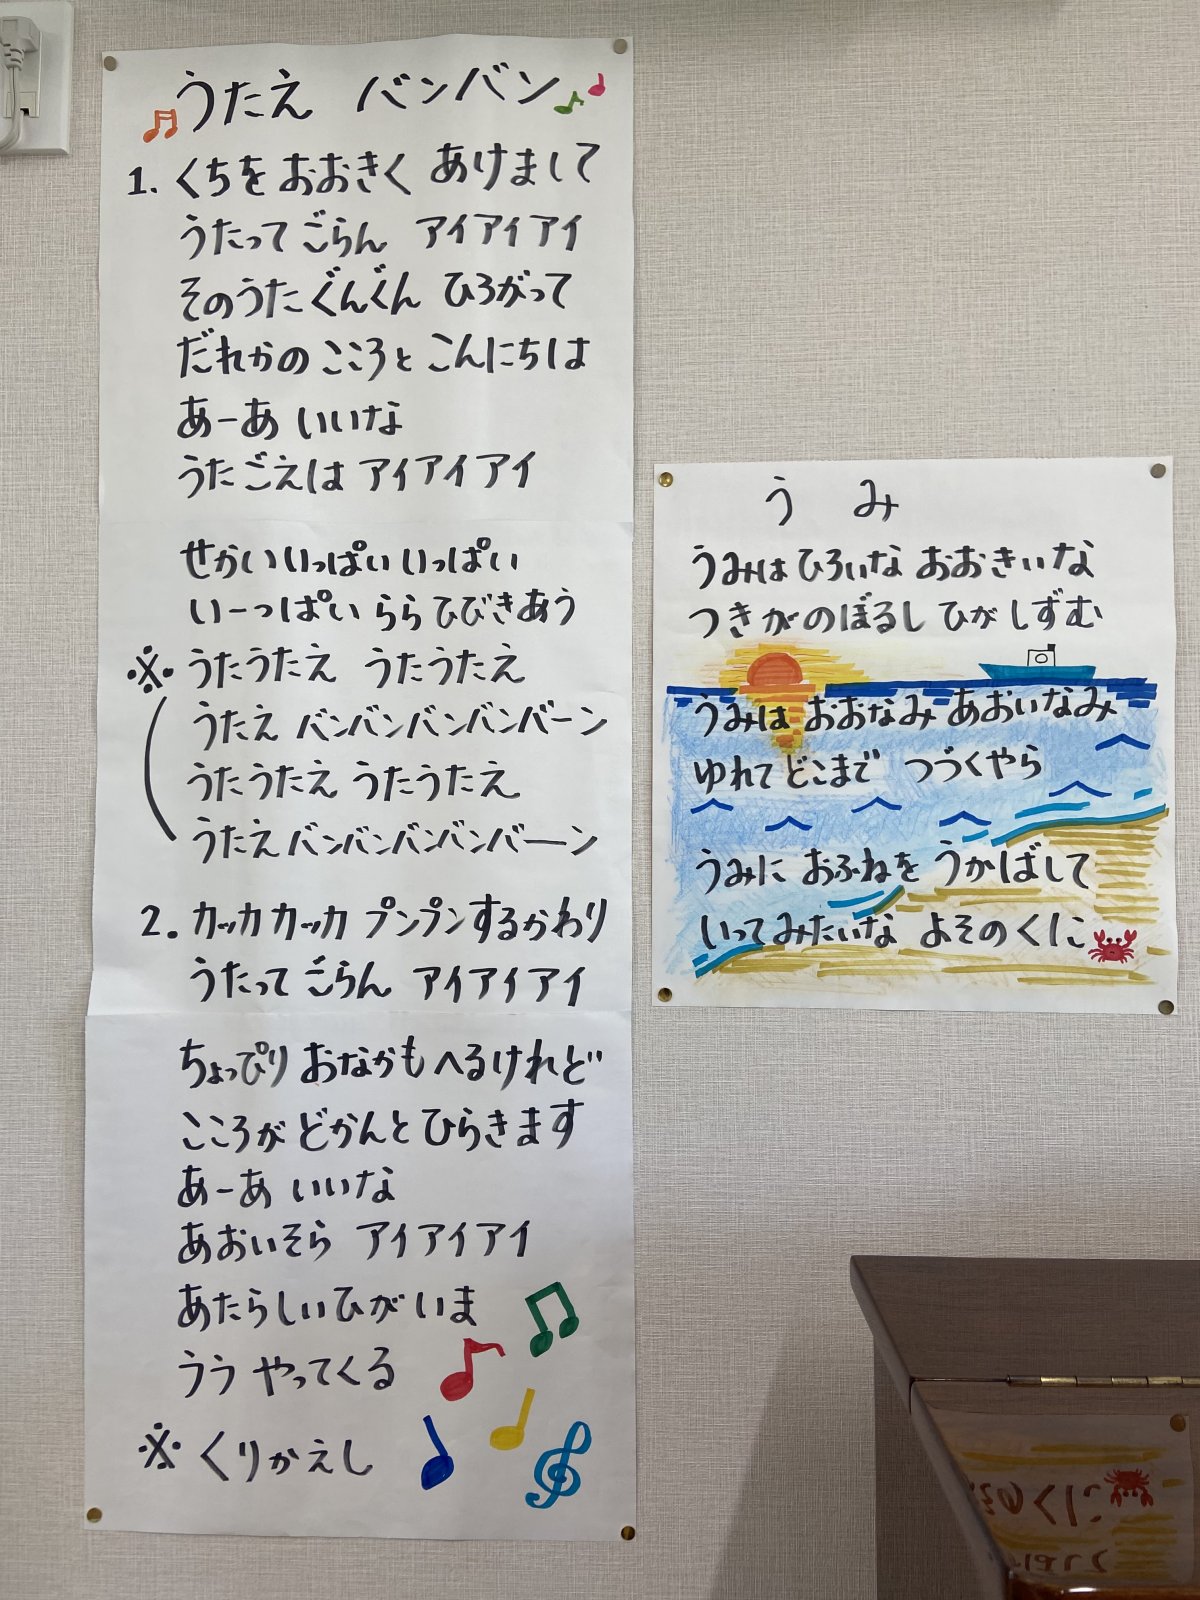 うたえ バンバン
1. くちを おおきく あけまして
うたって ごらん アイアイアイ
そのうた ぐんぐん ひろがって
だれかの こころと こんにちは
あーあ いいな
うたごえは アイアイアイ
せかい いっぱい いっぱい
いーっぱい らら ひびきあう
※ うたうたえ うたうたえ
うたえ バンバンバンバンバーン
うたうたえ うたうたえ
うたえ バンバンバンバンバーン
2. カッカ カッカ プンプン するかわり
うたって ごらん アイアイアイ
ちょっぴり おなかも へるけれど
こころが どかんと ひらきます
あーあ いいな
あおいそら アイアイアイ
あたらしい ひが いま
うう やってくる
※ くりかえし
うみ
うみは ひろいな おおきいな
つきが のぼるし ひが しずむ
うみは おおなみ あおいなみ
ゆれて どこまで つづくやら
うみに おふねを うかばして
いってみたいな よその くに
そのくに
ばして